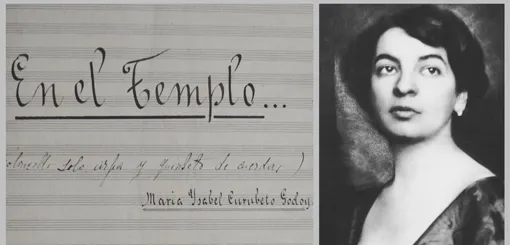 En el Templo...
solo, arpa y quinteto de cuerdas)
María Ysabel Curubeto Godoy.